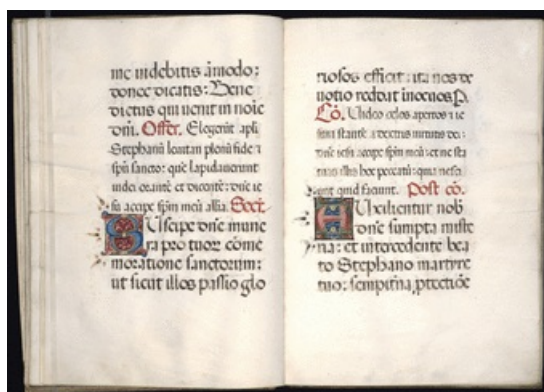 me videbitis amodo:
donec dicatis: Bene
dictus qui uenit in noie
dni. Offer. Elegerūt apli
Stephanū leuitam plenū fide ⁊
spū sancto: quē lapidauerunt
iudei orante et dicente: dne ie
su accipe spm meū allīa. Secr.
Suscipe dne mune
ra pro tuor cōme
moratione sanctorum:
ut sicut illos passio glo
riosos efficit: ita nos de
uotio reddat inocuos P.
Cō. Uideo celos apertos ⁊ ie
sum stantē a dextris uirtutis dei:
dne iesu accipe spm meū: et ne sta
tuas illis hoc peccatū: quia nesci
unt quid faciunt. Post cō.
Auxilientur nob
dne sumpta miste
ria: et intercedente bea
to Stephano martyre
tuo: sempitna ptectiōe